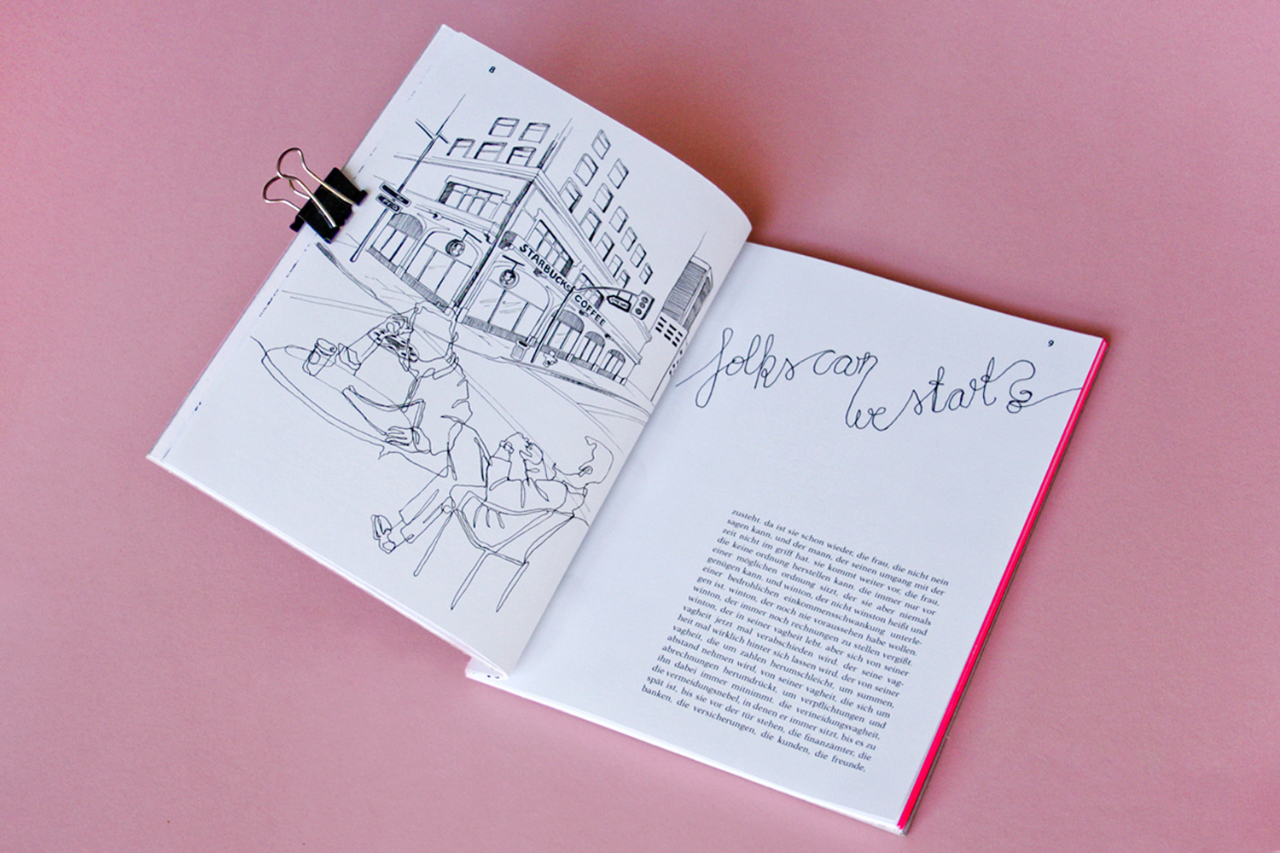 8
STARBUCKS COFFEE
9
folks can
we start?
zusteht. da ist sie schon wieder, die frau, die nicht nein
sagen kann, und der mann, der seinen umgang mit der
zeit nicht im griff hat. sie kommt weiter vor, die frau,
die keine ordnung herstellen kann. die immer nur vor
einer möglichen ordnung sitzt, der sie aber niemals
genügen kann. und winton, der nicht winston heißt und
einer bedrohlichen einkommensschwankung unterle-
gen ist. winton, der noch nie voraussehen habe wollen.
winton, der immer noch rechnungen zu stellen vergißt.
winton, der in seiner vagheit lebt, aber sich von seiner
vagheit jetzt mal verabschieden wird. der seine vag-
heit mal wirklich hinter sich lassen wird, der von seiner
vagheit, die um zahlen herumschleicht, um summen,
abstand nehmen wird, von seiner vagheit, die sich um
abrechnungen herumdrückt, um verpflichtungen und
ihn dabei immer mitnimmt. die vermeidungsvagheit,
die vermeidungsnebel, in denen er immer sitzt, bis es zu
spät ist, bis sie vor der tür stehen, die finanzämter, die
banken, die versicherungen, die kunden, die freunde,